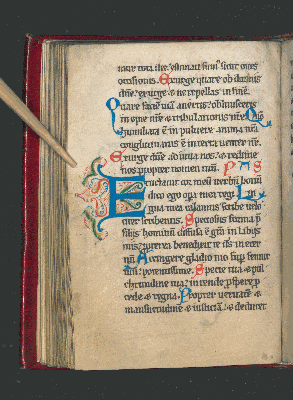 mur tota die: estimati sum᷒ sicut oues
occisionis. Exurge quare obdormis
dn̄e: exurge & ne repellas in finē.
Quare faciē tuā auertis: obliuisceris
inopie nr̄e & tribulationis nr̄e. Qm̄
humiliata ē in puluere anima nr̄a
conglutinatus ē in terra uenter nr̄.
Exurge dn̄e adiuua nos: & redime
nos propter nomen tuū. PS
Eructauit cor meū uerbū bonū
dico ego opera mea regi. Lin
gua mea calamus scribe uelo
citer scribentis. Speciosus forma p̄
filiis hominū diffusa ē grā in labiis
tuis: propterea benedixit te dс̄ in eter
nū. Accingere gladio tuo sup̱ femur
tuū: potentissime. Specie tua & pul
chritudine tua: intende prosperę pro
cede & regna. Propter ueritatē &
mansuetudinē & iusticiā: & deducet